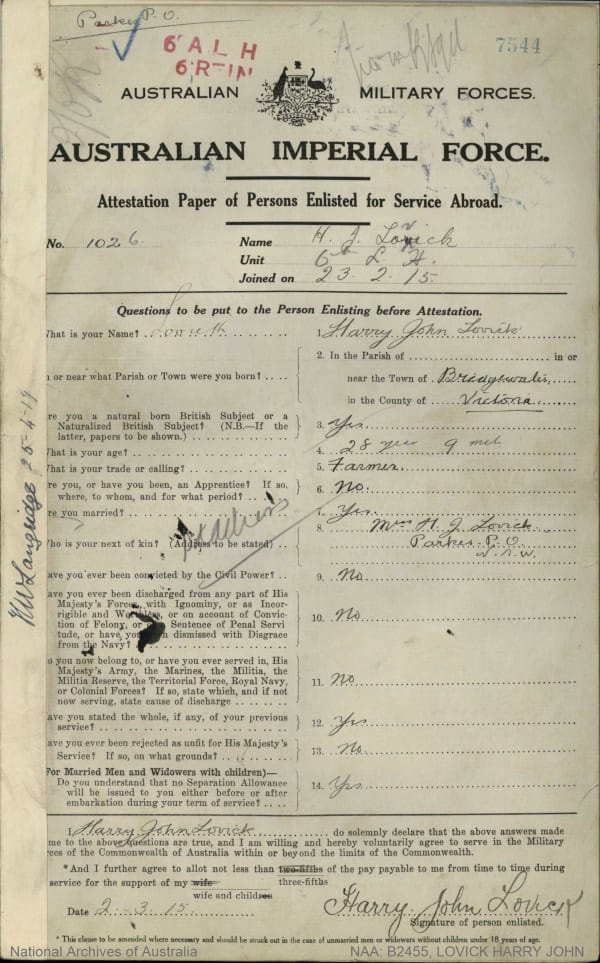 Parkes P. O.
6 A L H
6 R-IN
7544
AUSTRALIAN MILITARY FORCES.
AUSTRALIAN IMPERIAL FORCE.
Attestation Paper of Persons Enlisted for Service Abroad.
No. 1026. Name H. J. Lovick
Unit 6th L. H.
Joined on 23. 2. 15.
Questions to be put to the Person Enlisting before Attestation.
hat is your Name? Lovick 1. Harry John Lovick
2. In the Parish of in or
n or near what Parish or Town were you born? near the Town of Bridgewater
in the County of Victoria
re you a natural born British Subject or a
Naturalized British Subject? (N.B.—If the 3. Yes
latter, papers to be shown.)
hat is your age? 4. 28 year 9 mth
hat is your trade or calling? 5. Farmer
re you, or have you been, an Apprentice? If so,
where, to whom, and for what period? 6. No.
re you married? 7. Yes.
8. Mrs H. J. Lovick
ho is your next of kin? (Address to be stated) Parkes P.O.
N.S.W.
ave you ever been convicted by the Civil Power? 9. No
ave you ever been discharged from any part of His
Majesty's Forces, with Ignominy, or as Incor-
rigible and Worthless, or on account of Convic-
tion of Felony, or of a Sentence of Penal Servi 10. No
tude, or have you been dismissed with Disgrace
from the Navy?
o you now belong to, or have you ever served in, His
Majesty's Army, the Marines, the Militia, the
Militia Reserve, the Territorial Force, Royal Navy, 11. No
or Colonial Forces? If so, state which, and if not
now serving, state cause of discharge
ave you stated the whole, if any, of your previous
service? 12. Yes
ave you ever been rejected as unfit for His Majesty's
Service? If so, on what grounds? 13. No.
For Married Men and Widowers with children)—
Do you understand that no Separation Allowance
will be issued to you either before or after 14. Yes
embarkation during your term of service?
KW Langridge 25-4-19
I, Harry John Lovick do solemnly declare that the above answers made
me to the above questions are true, and I am willing and hereby voluntarily agree to serve in the Military
ces of the Commonwealth of Australia within or beyond the limits of the Commonwealth.
*And I further agree to allot not less than two-fifths of the pay payable to me from time to time during
three-fifths
service for the support of my wife
wife and children
Date 2-3.15. Harry John Lovick
Signature of person enlisted.
*This clause to be amended where necessary and should be struck out in the case of unmarried men or widowers without children under 18 years of age.
National Archives of Australia NAA: B2455, LOVICK HARRY JOHN